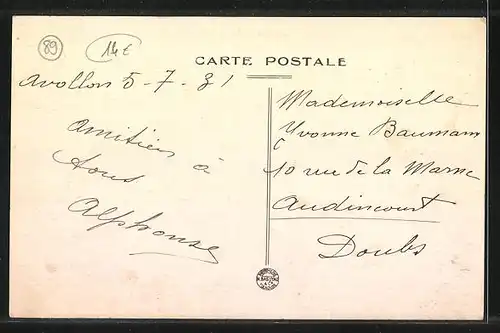 89
14€
CARTE POSTALE
Avallon 5-7-31
Amitiés à
tous
Alphonse
Mademoiselle
Yvonne Baumann
10 rue de la Marne
Audincourt
Doubs